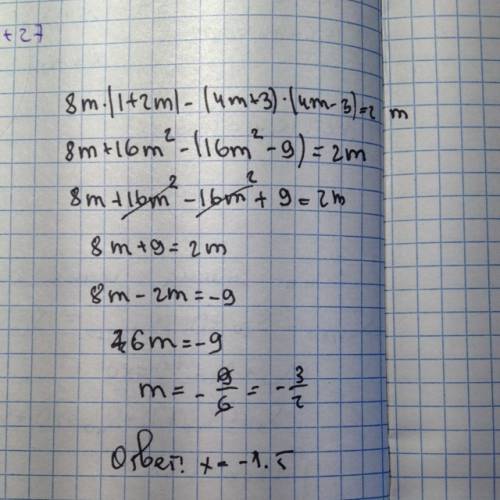 +27
8m·(1+2m)-(4m+3)·(4m-3)=2m
8m+16m²-(16m²-9)=2m
8m+16m²-16m²+9=2m
8m+9=2m
8m-2m=-9
6m=-9
m=-9/6=-3/2
Ответ: x=-1.5